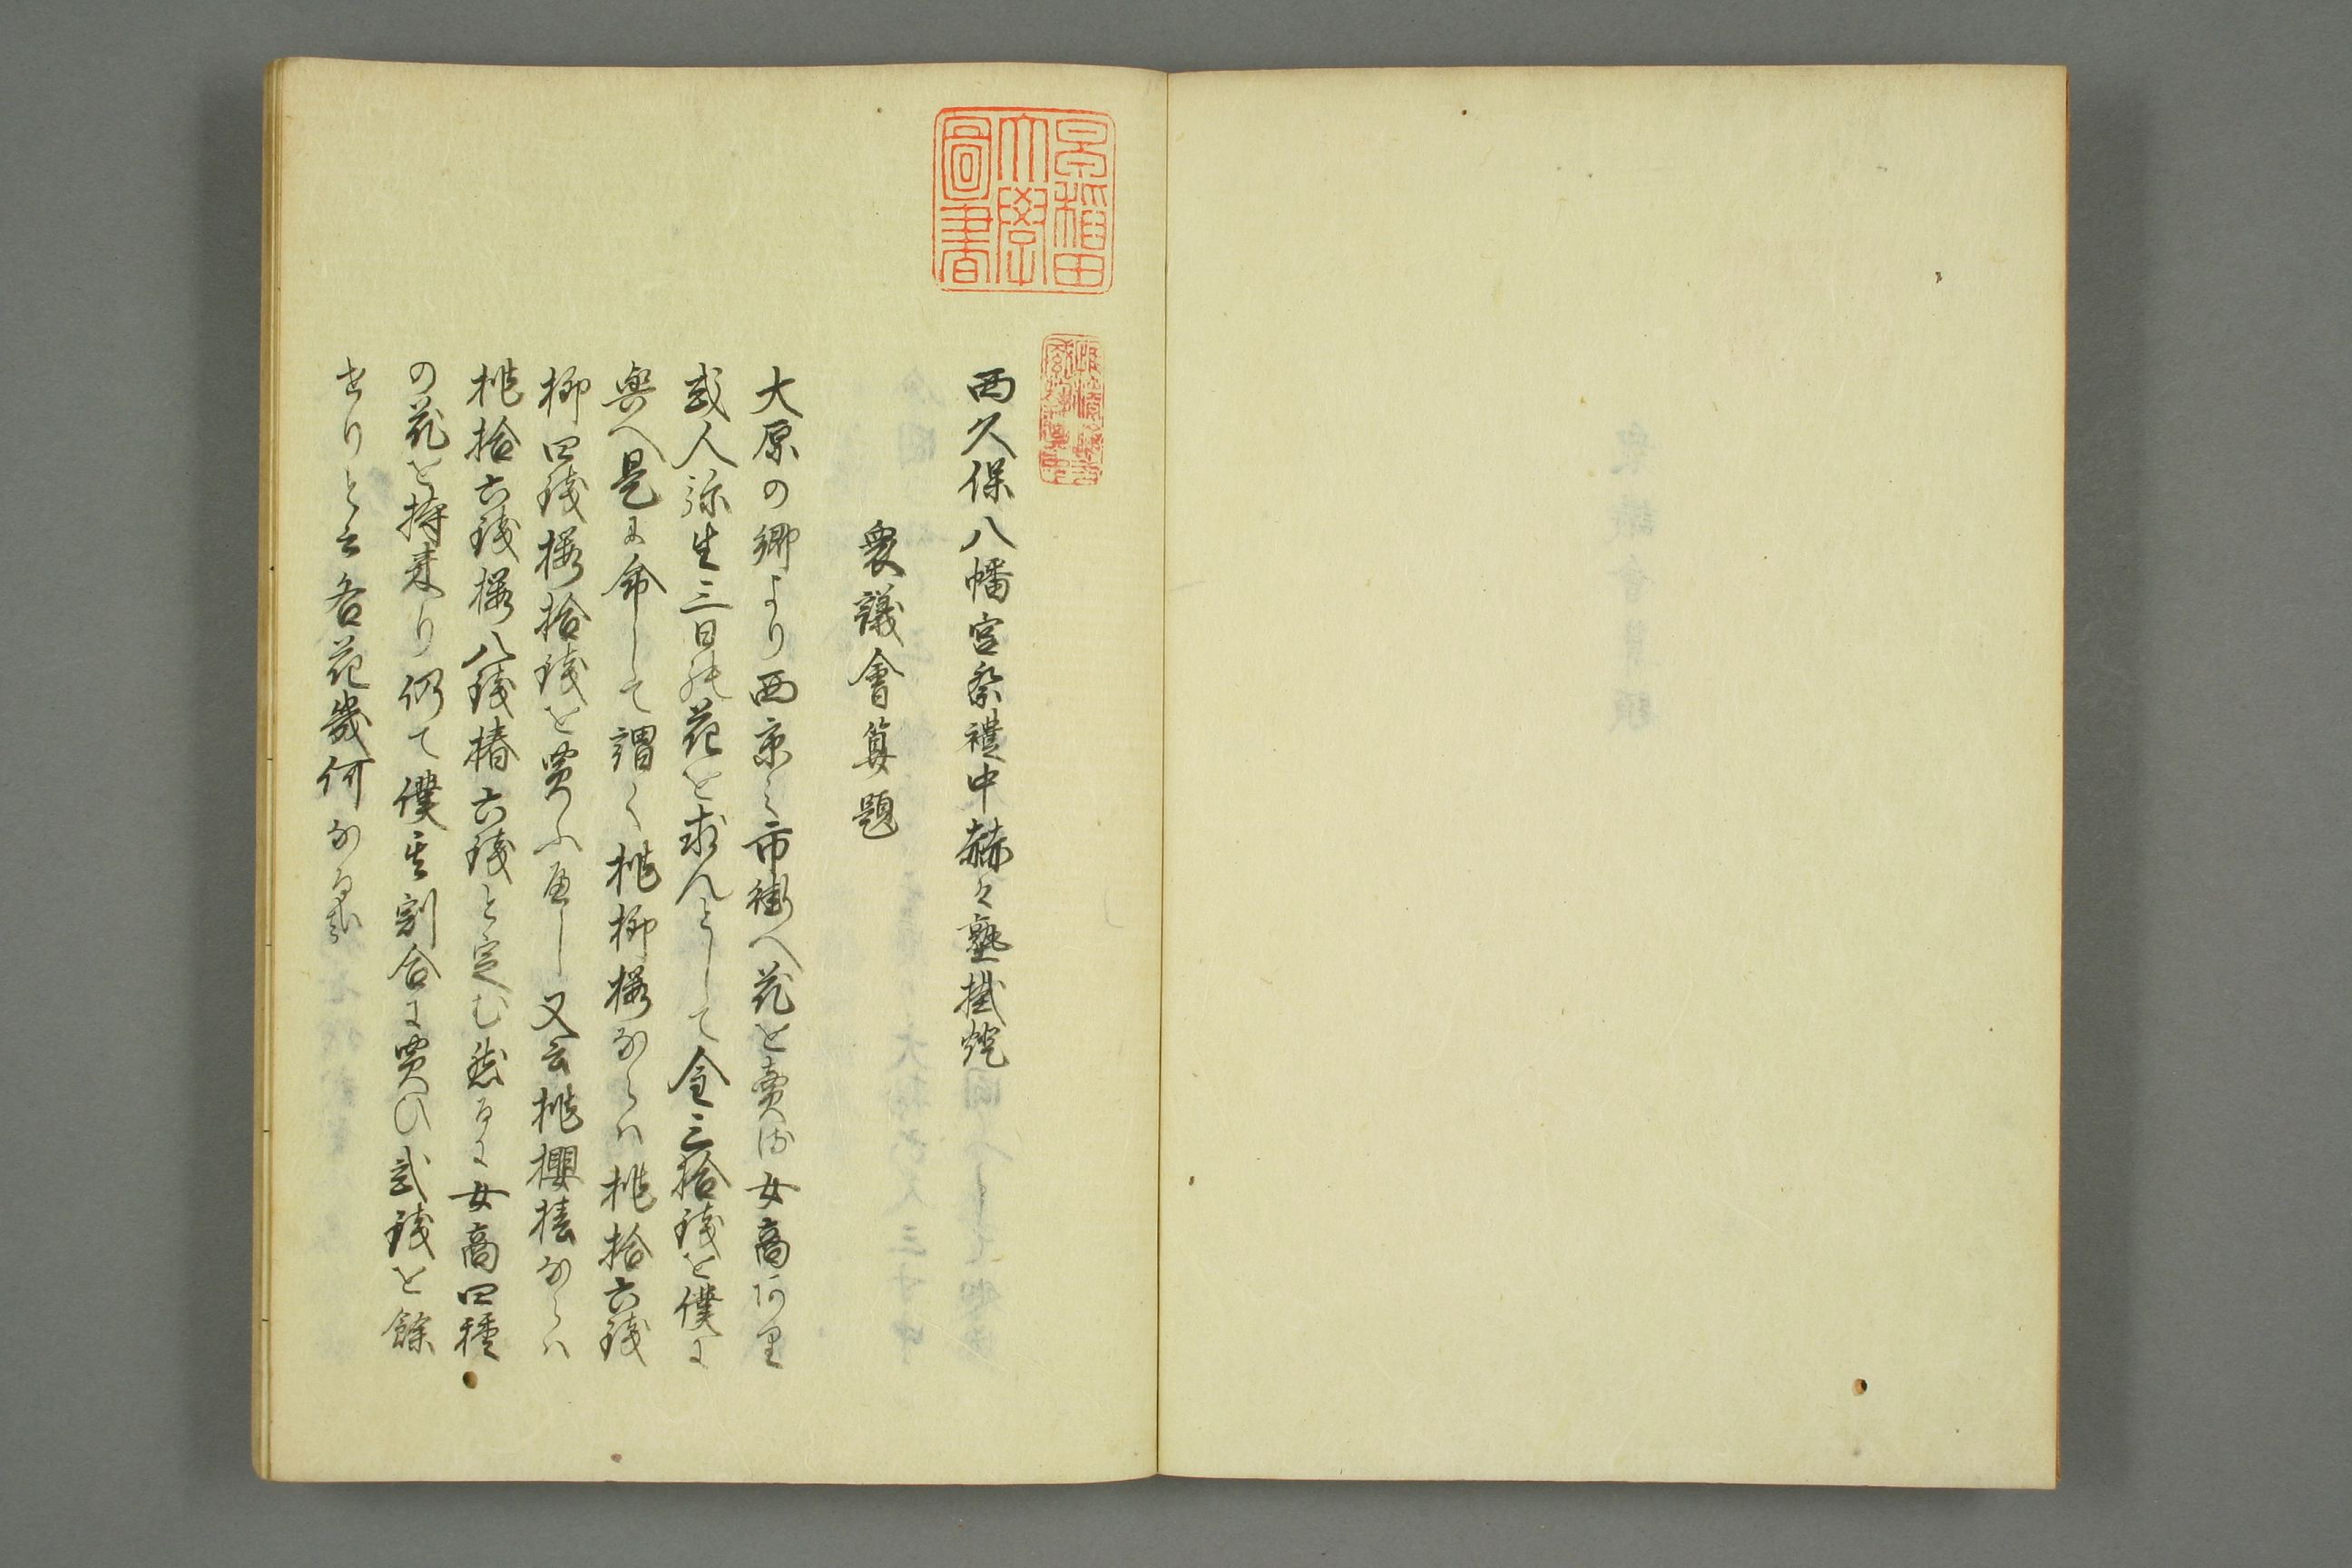 早稲田大學圖書
西久保八幡宮祭禮中赫々塾掛燈
衆議會算題
大原の郷より西京之市街へ花を賣る女商あり里
或人弥生三日の花を求んとして金三拾銭を僕に
與へ是に命して謂く桃柳櫻ならハ桃拾六銭
柳四銭櫻拾銭を買ふ尽し又云桃櫻椿ならハ
桃拾六銭櫻八銭椿六銭と定む然るに女商四種
の花を持来り仍て僕其割合に買ひ弐銭を餘
せりと云各花幾何なるや
衆議會算題